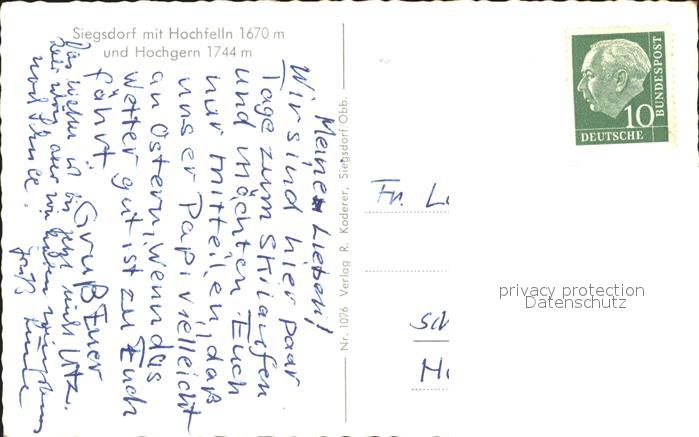 Siegsdorf mit Hochfelln 1670 m
und Hochgern 1744 m
Meine Lieben!
Wir sind hier paar
Tage zum Skilaufen
und möchten Euch
nur mitteilen, daß
unser Papi vielleicht
an Ostern, wenn das
Wetter gut ist zu Euch
fährt.
Gruß Euer
Utz.
Das Wetter ist bis jetzt nicht
noch Schnee.
Gruß
Nr. 1026 Verlag R. Koderer, Siegsdorf Obb.
10
DEUTSCHE
BUNDESPOST
Fr.
privacy protection
Datenschutz